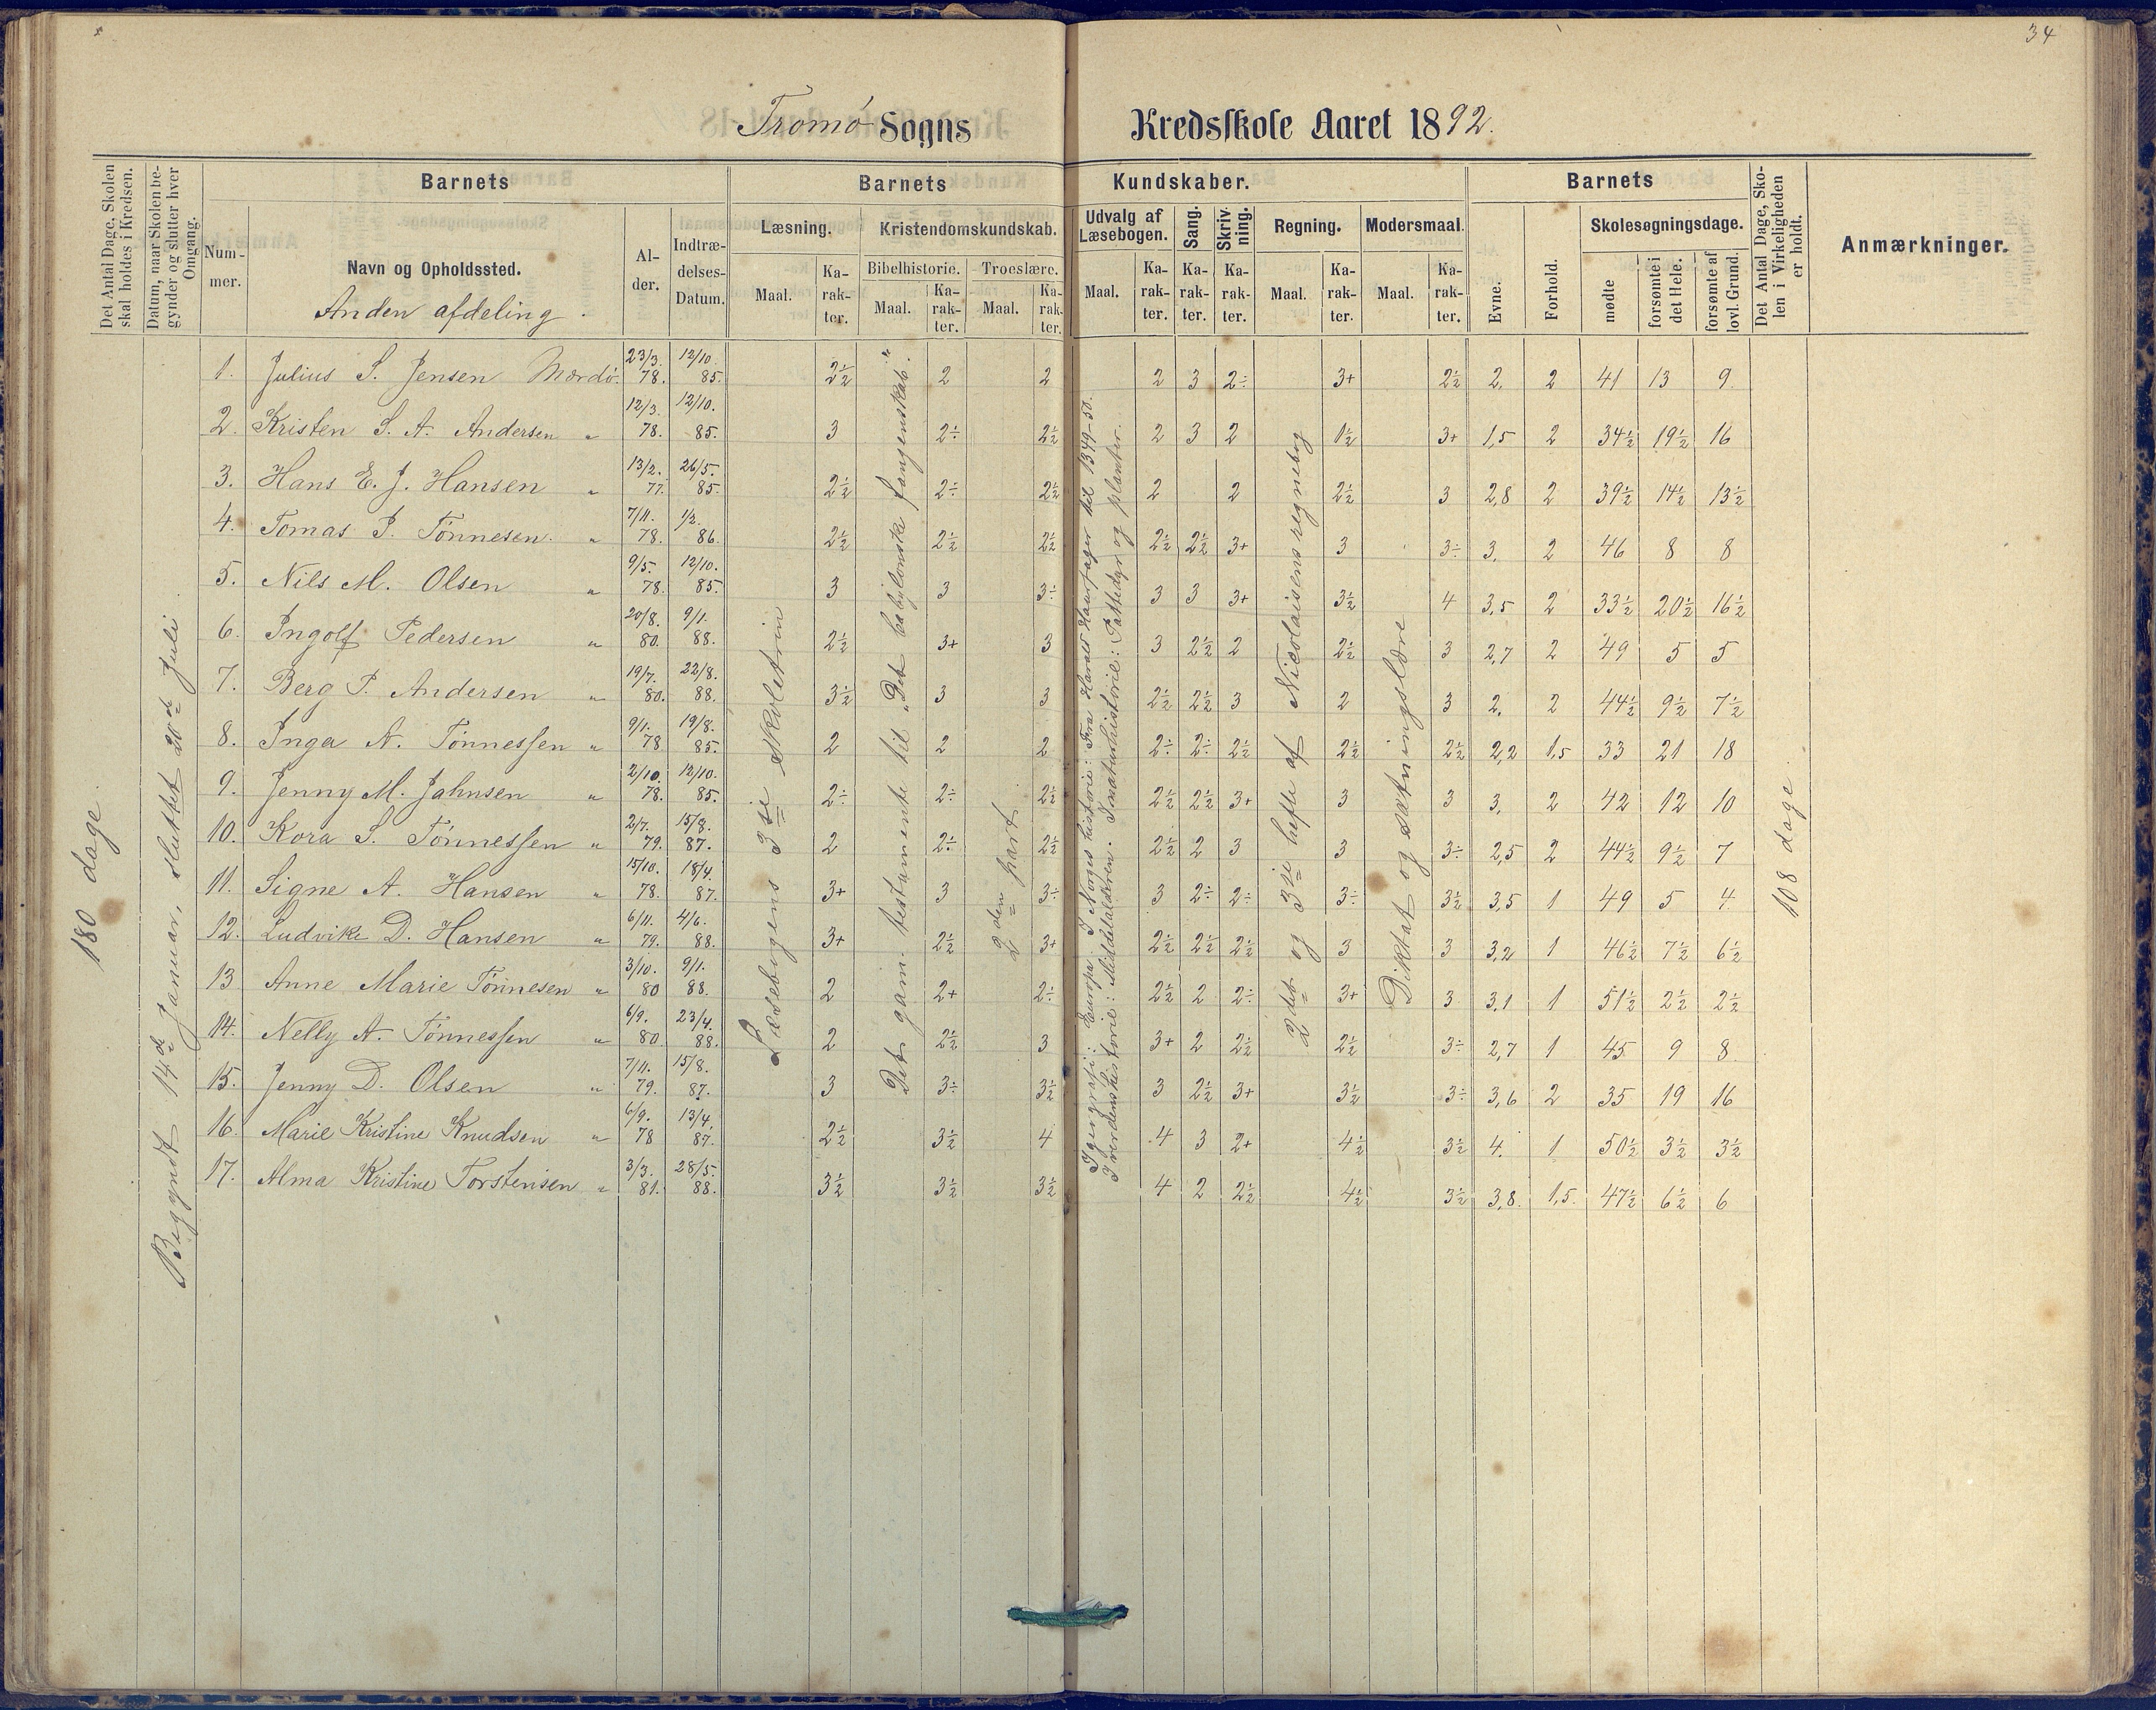 34
Tromø Sogns Kredsskole Aaret 1892.
Det Antal Dage, Skolen skal holdes i Kredsen.
Datum, naar Skolen begynder og slutter hver Omgang.
Barnets
Nummer.
Navn og Opholdssted.
Anden afdeling.
Alder.
Indtrædelses-Datum.
Barnets Kundskaber.
Læsning.
Maal.
Karakter.
Kristendomskundskab.
Bibelhistorie.
Maal.
Karakter.
Troeslære.
Maal.
Karakter.
Udvalg af Læsebogen.
Maal.
Karakter.
Sang.
Karakter.
Skrivning.
Karakter.
Regning.
Maal.
Karakter.
Modersmaal.
Maal.
Karakter.
Barnets
Evne.
Forhold.
Skolesøgningsdage.
mødte
forsømte i det Hele.
forsømte af lovl. Grund.
Det Antal Dage, Skolen i Virkeligheden er holdt.
Anmærkninger.
180 dage.
Begyndt 14de Januar, sluttet 20de Juli.
Læsebogens 3die skoletrin
Det gam. testamente til "Det babylonske fangenskab."
2den part.
I geografi: Europa. I Norges historie: Fra Harald Haarfager til 1349-50.
I verdenshistorie: Middelalderen. I naturhistorie: Pattedyr og planter.
2det og 3die hefte af Nicolaisens regnebog
Diktat og sætningslære
108 dage.
1. Julius S. Jensen Mærdø. 23/3. 78. 12/10. 85. 2½ 2 2 2 3 2÷ 3+ 2½ 2, 2 41 13 9.
2. Kristen S. A. Andersen " 12/3. 78. 12/10. 85. 3 2÷ 2½ 2 3 2 1½ 3+ 1,5 2 34½ 19½ 16
3. Hans E. J. Hansen " 13/2. 77. 26/5. 85. 2½ 2÷ 2½ 2 2 2½ 3 2,8 2 39½ 14½ 13½
4. Tomas P. Tønnesen. " 7/11. 78. 1/2. 86. 2½ 2½ 2½ 2½ 2½ 3+ 3 3÷ 3, 2 46 8 8
5. Nils M. Olsen " 9/5. 78. 12/10. 85. 3 3 3÷ 3 3 3+ 3½ 4 3,5 2 33½ 20½ 16½
6. Ingolf Pedersen " 20/8. 80. 9/1. 88. 2½ 3+ 3 3 2½ 2 2½ 3 2,7 2 49 5 5
7. Berg P. Andersen " 19/7. 80. 22/8. 88. 3½ 3 3 2½ 2½ 3 2 3 2, 2 44½ 9½ 7½
8. Inga N. Tønnessen " 9/1. 78 19/8. 85. 2 2 2 2÷ 2÷ 2½ 2½ 2½ 2,2 1,5 33 21 18
9. Jenny M. Jahnsen " 2/10. 78. 12/10. 85. 2÷ 2÷ 2½ 2½ 2½ 3+ 3 3 3, 2 42 12 10
10. Kora S. Tønnessen " 2/7. 79. 15/8. 87. 2 2÷ 2½ 2½ 2 3 3 3÷ 2,5 2 44½ 9½ 7
11. Signe A. Hansen " 15/10. 78. 18/4. 87. 3+ 3 3÷ 3 2÷ 2÷ 3÷ 3½ 3,5 1 49 5 4.
12. Ludvike D. Hansen " 6/11. 79. 4/6. 88. 3+ 2½ 3+ 2½ 2½ 2½ 3 3 3,2 1 46½ 7½ 6½
13 Anne Marie Tønnesen " 3/10. 80 9/1. 88. 2 2+ 2÷ 2½ 2 2÷ 3+ 3 3,1 1 51½ 2½ 2½
14. Nelly A. Tønnessen " 6/9. 80. 23/4. 88. 2 2½ 3 3+ 2 2½ 2½ 3÷ 2,7 1 45 9 8.
15. Jenny D. Olsen " 7/11. 79. 15/8. 87. 3 3÷ 3½ 3 2½ 3+ 3½ 3÷ 3,6 2 35 19 16
16. Marie Kristine Knudsen " 6/9. 78 13/4. 87. 2½ 3½ 4 4 3 2+ 4½ 3½ 4. 1 50½ 3½ 3½
17. Alma Kristine Torstensen " 3/3. 81. 28/5. 88. 3½ 3½ 3½ 4 2 2½ 4½ 3½ 3,8. 1,5. 47½ 6½ 6